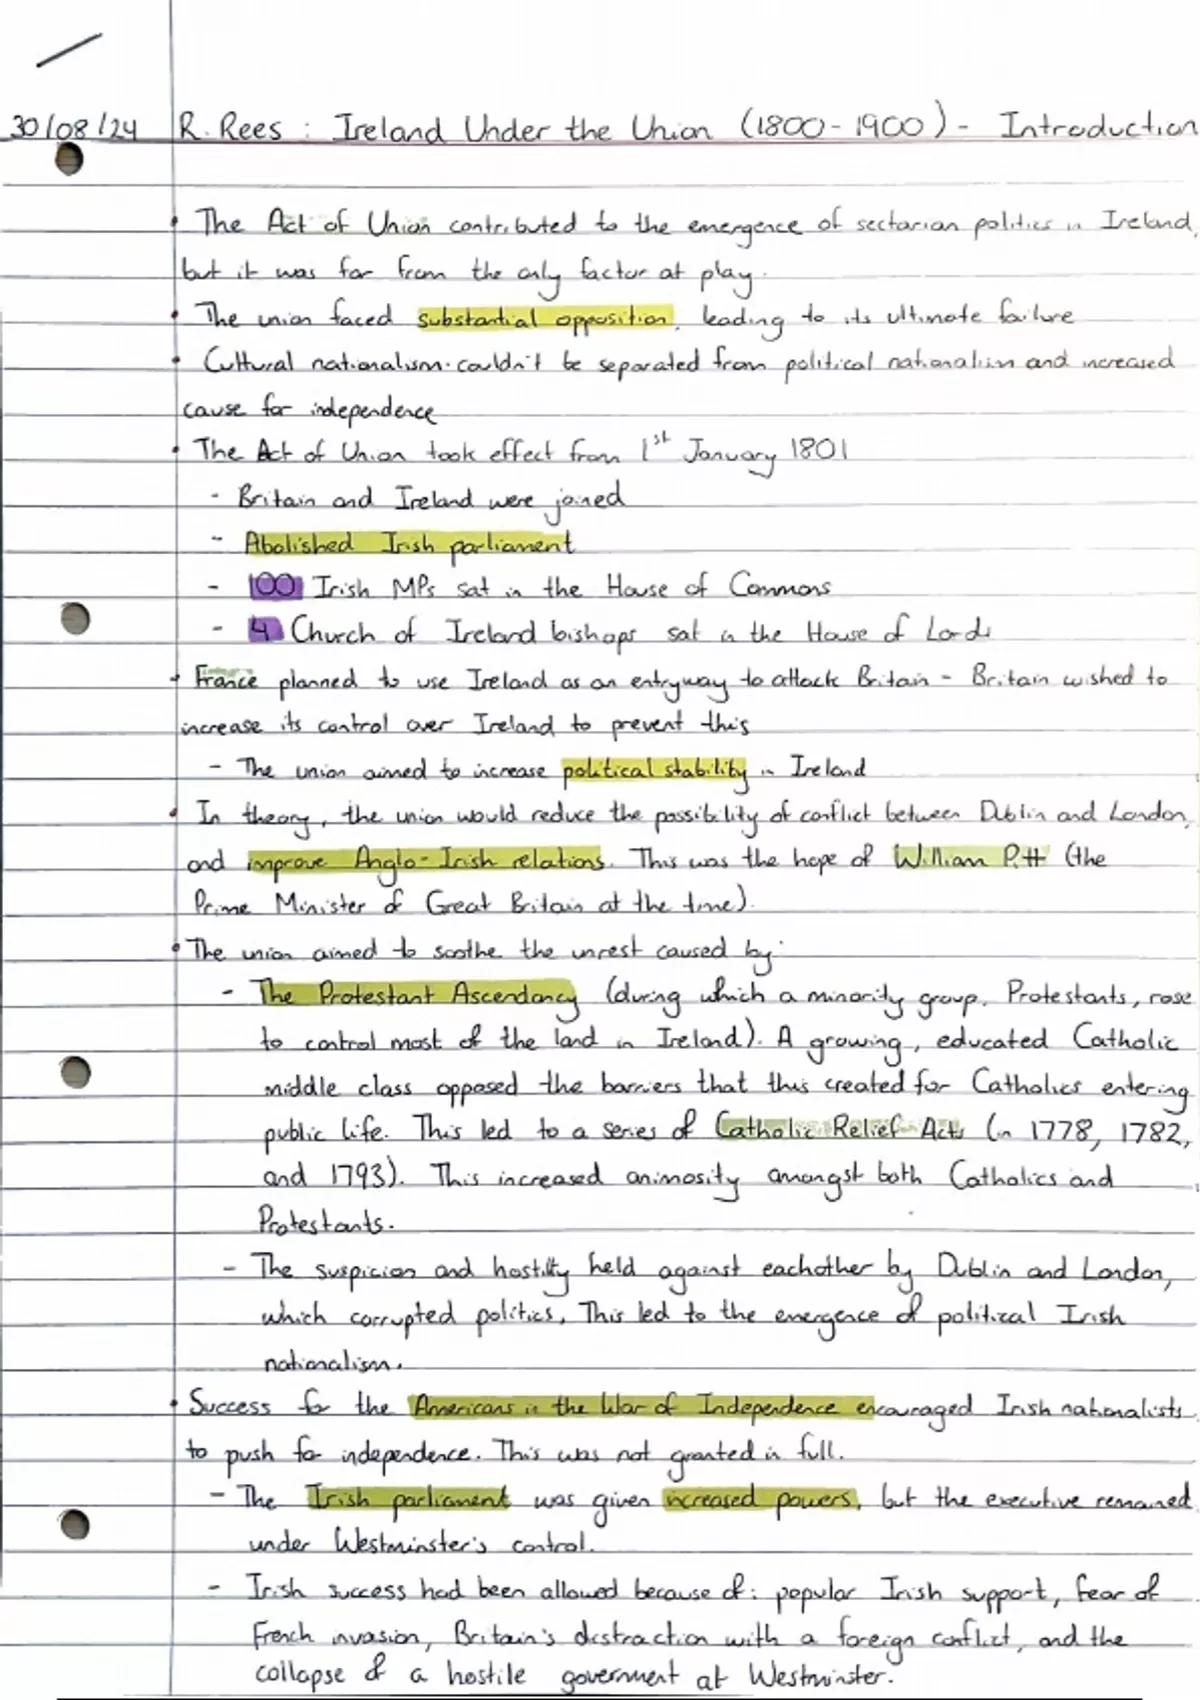 30/08/24 R. Rees : Ireland Under the Union (1800-1900) - Introduction
• The Act of Union contributed to the emergence of sectarian politics in Ireland,
but it was far from the only factor at play.
• The union faced substantial opposition, leading to its ultimate failure
• Cultural nationalism couldn't be separated from political nationalism and increased
cause for independence
• The Act of Union took effect from 1st January 1801
- Britain and Ireland were joined
- Abolished Irish parliament
- 100 Irish MPs sat in the House of Commons
- 4 Church of Ireland bishops sat in the House of Lords
• France planned to use Ireland as an entryway to attack Britain - Britain wished to
increase its control over Ireland to prevent this
- The union aimed to increase political stability in Ireland
• In theory, the union would reduce the possibility of conflict between Dublin and London,
and improve Anglo-Irish relations. This was the hope of William Pitt (the
Prime Minister of Great Britain at the time).
• The union aimed to soothe the unrest caused by:
- The Protestant Ascendancy (during which a minority group, Protestants, rose
to control most of the land in Ireland). A growing, educated Catholic
middle class opposed the barriers that this created for Catholics entering
public life. This led to a series of Catholic Relief Acts (in 1778, 1782,
and 1793). This increased animosity amongst both Catholics and
Protestants.
- The suspicion and hostilty held against eachother by Dublin and London,
which corrupted politics. This led to the emergence of political Irish
nationalism.
• Success for the Americans in the War of Independence encouraged Irish nationalists
to push for independence. This was not granted in full.
- The Irish parliament was given increased powers, but the executive remained
under Westminster's control.
- Irish success had been allowed because of: popular Irish support, fear of
French invasion, Britain's distraction with a foreign conflict, and the
collapse of a hostile government at Westminster.